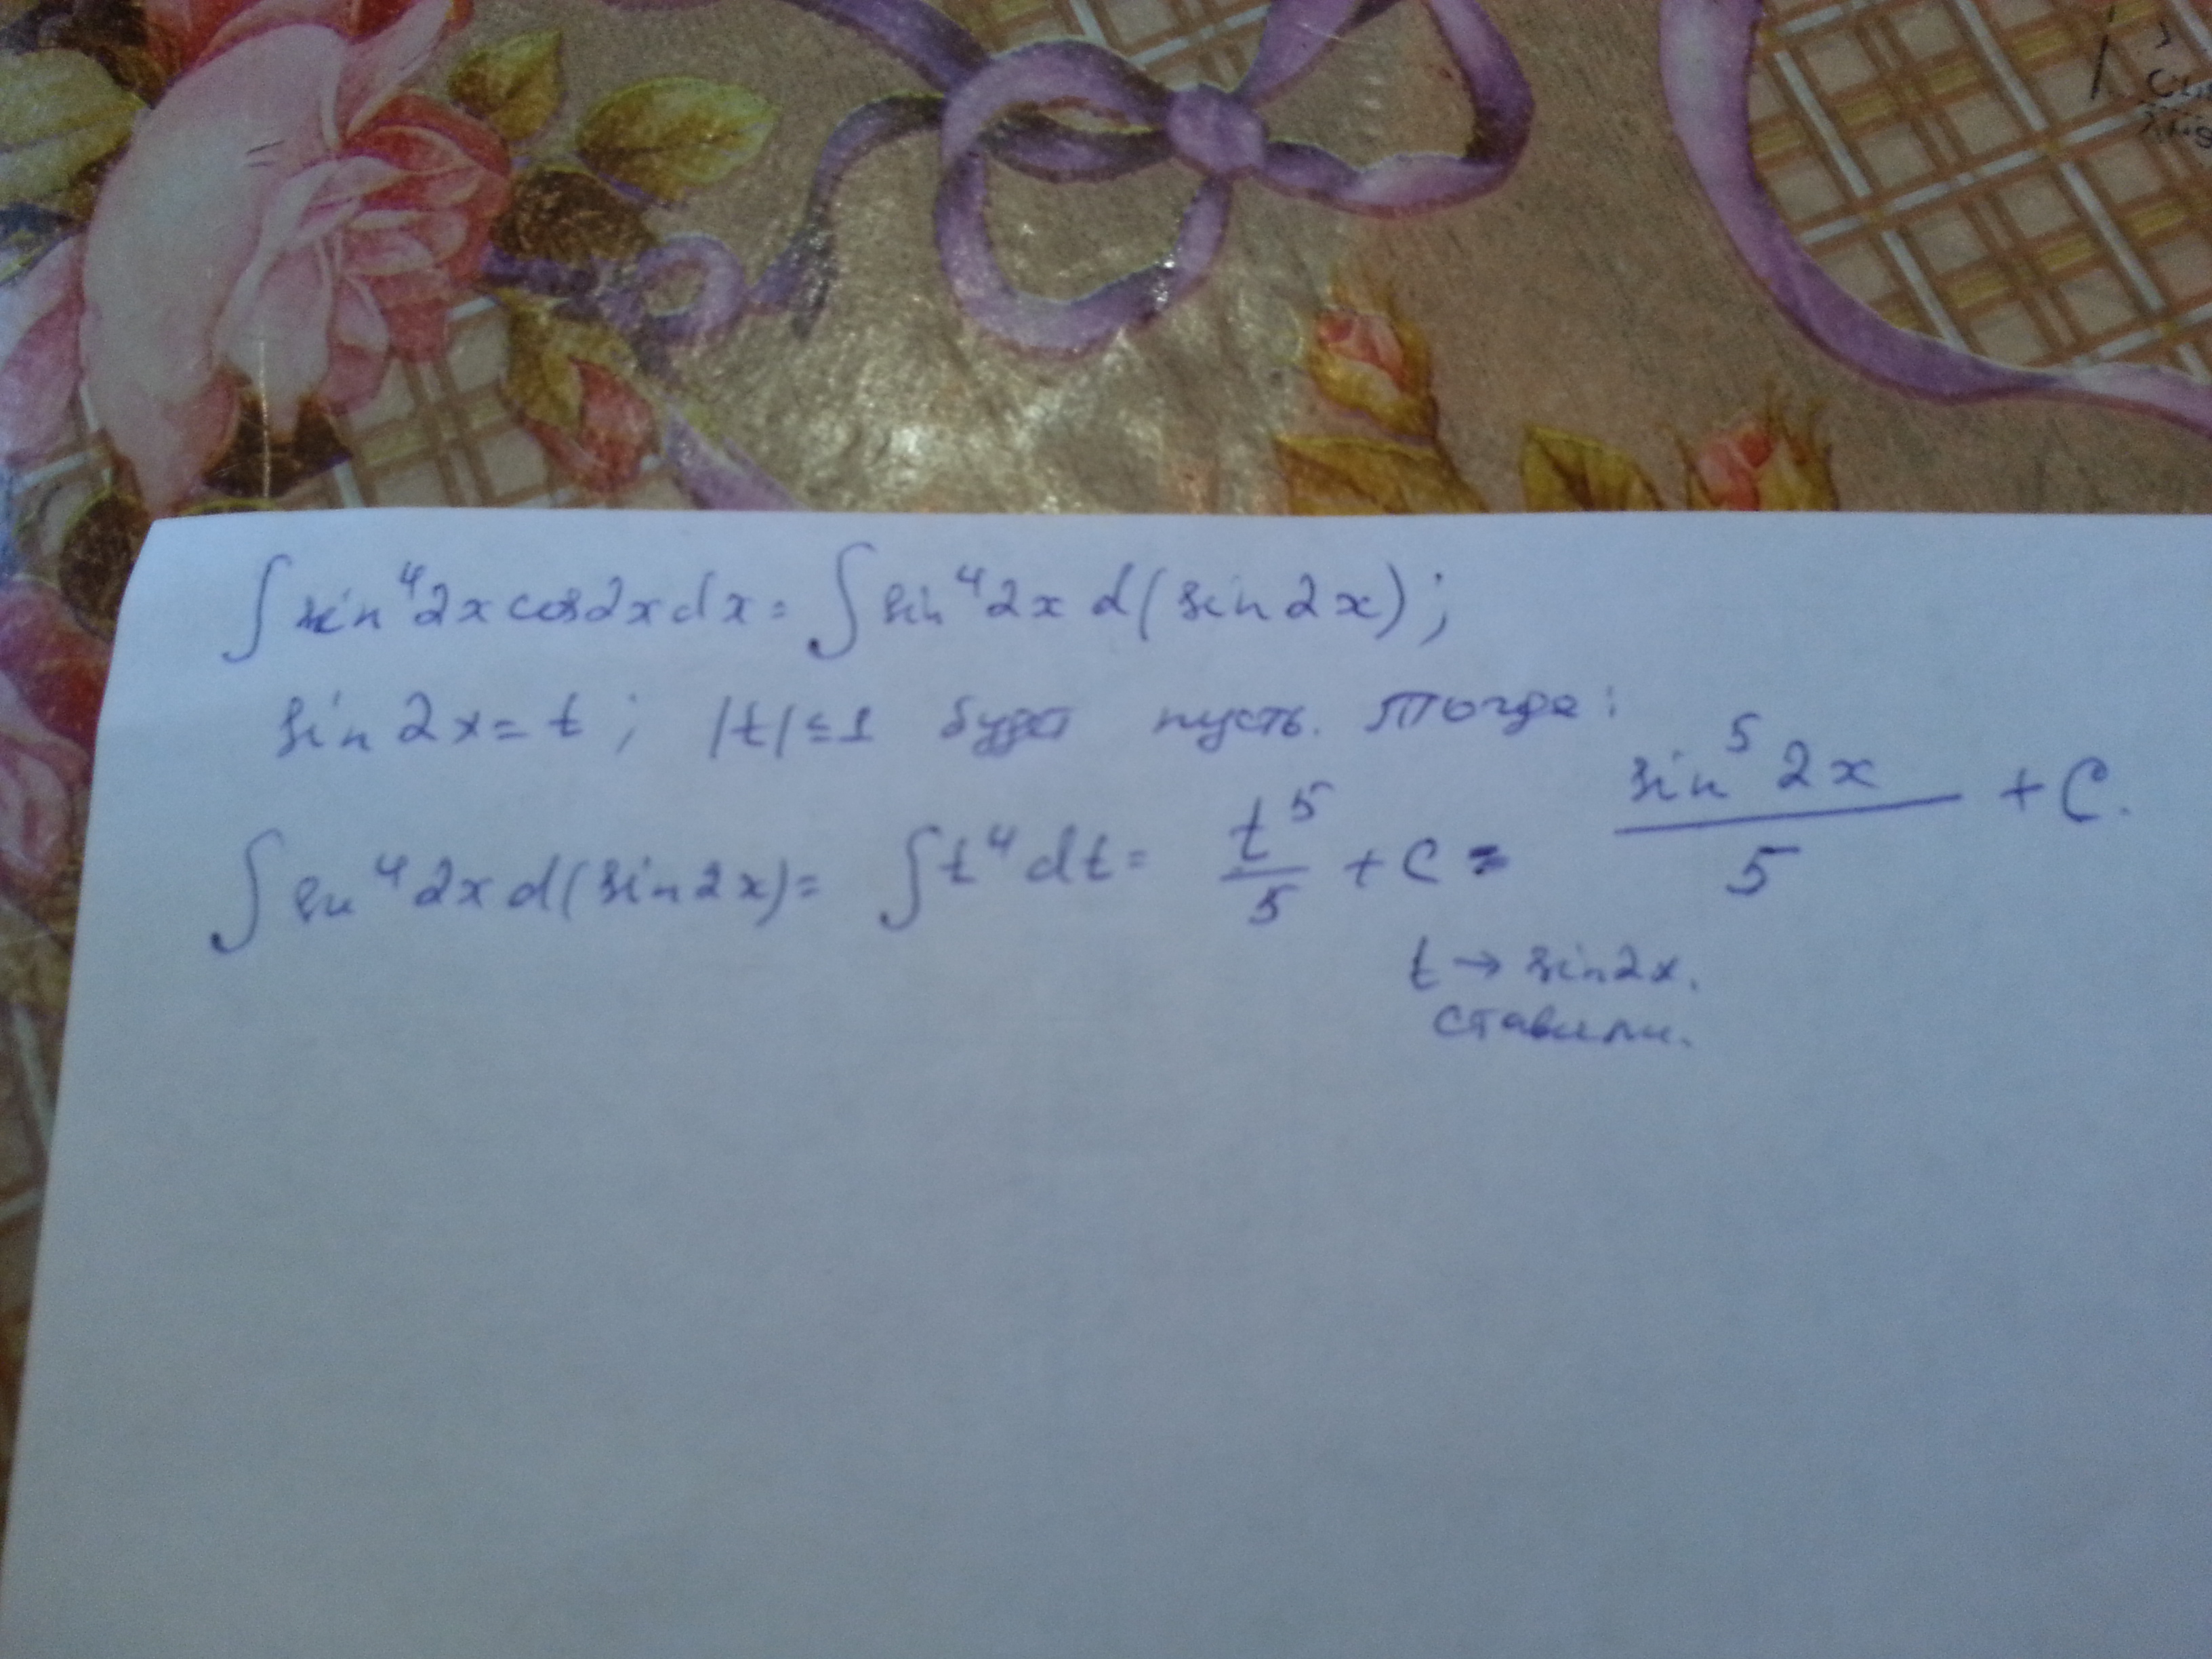 ∫ sin⁴2x cos2x dx = ∫ sin⁴2x d(sin2x);
sin2x = t; |t| ≤ 1 будет пусть. Тогда:
∫ sin⁴2x d(sin2x) = ∫ t⁴ dt = t⁵/5 + C = sin⁵2x/5 + C.
t → sin2x.
ставили.